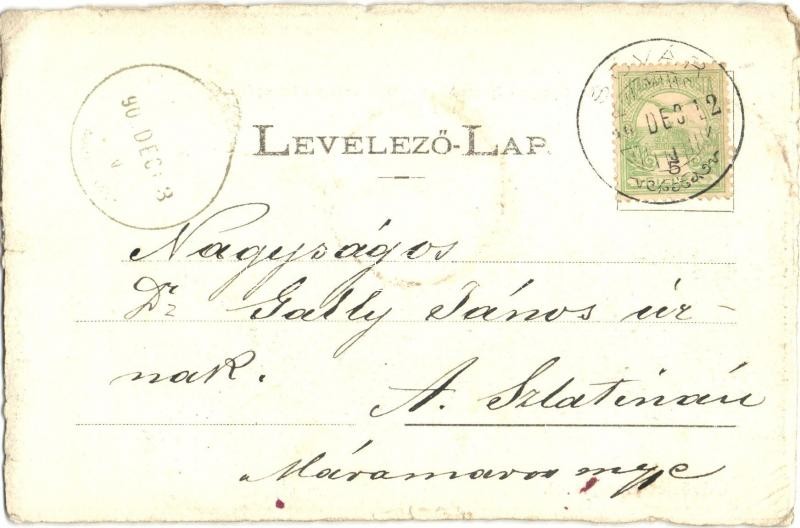 90 DEC 13
A
DEC 12
5
LEVELEZŐ-LAP.
Nagyságos
Dr Gally János úr-
nak.
A. Szlatinán
Máramaros mgye